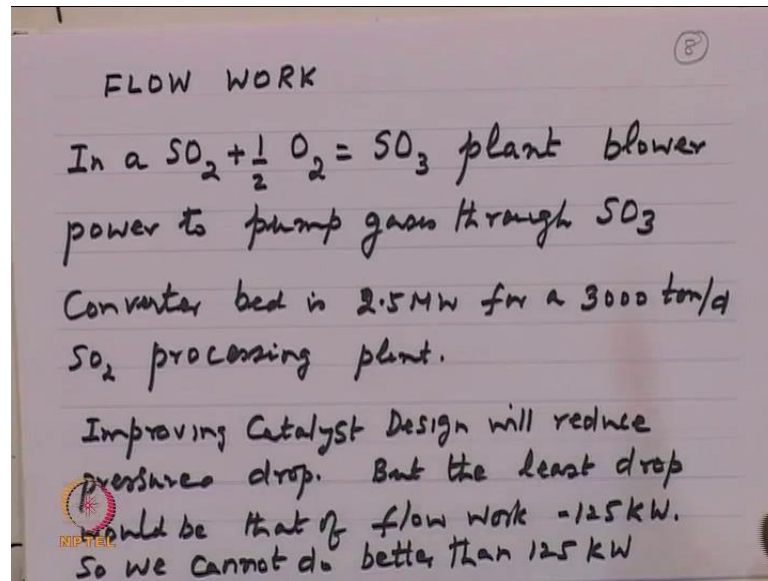 8
FLOW WORK
In a SO₂ + 1/2 O₂ = SO₃ plant blower
power to pump gases through SO₃
Converter bed is 2.5 MW for a 3000 ton/d
SO₂ processing plant.
Improving Catalyst Design will reduce
pressure drop. But the least drop
would be that of flow work = 125 KW.
So we cannot do better than 125 KW
NPTEL